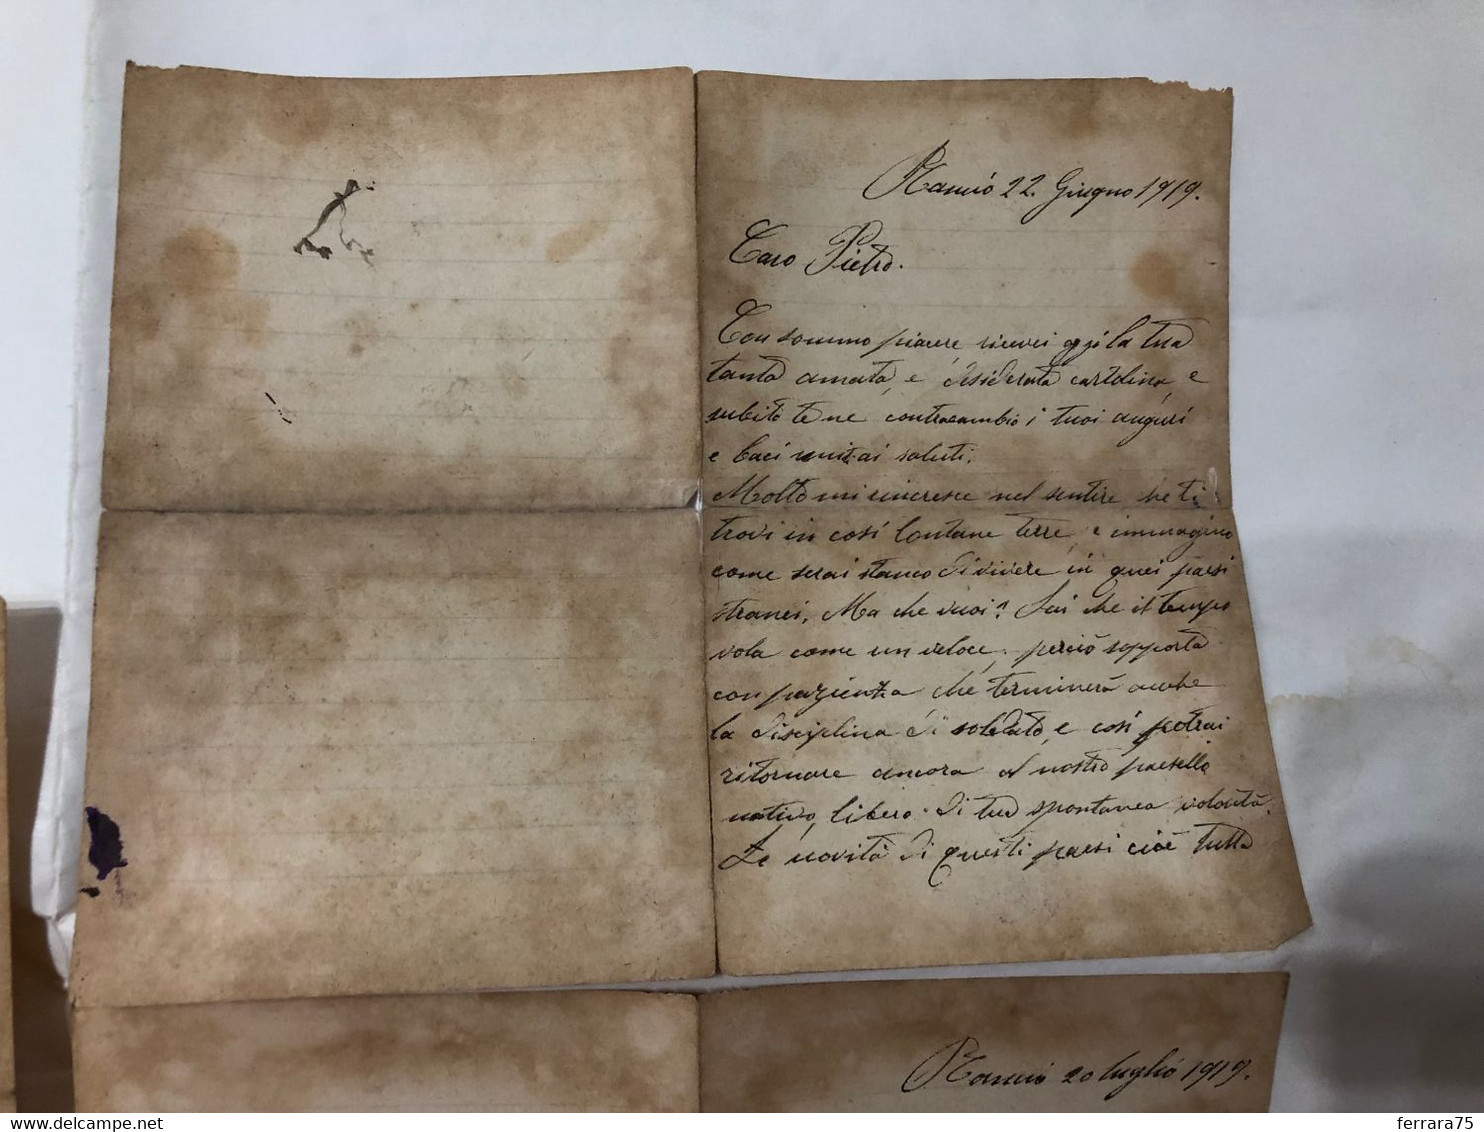 Rancio 22. Giugno 1919.
Caro Pietro.
Con sommo piacere, ricevei oggi la tua
tanto amata, e desiderata cartolina, e
subito te ne contracambio i tuoi auguri
e baci unitai saluti.
Molto mi rincresce nel sentire che ti
trovi in così lontane terre, e immagino
come serai stanco di vivere in quei paesi
stranei, Ma che vuoi? Sai che il tempo
vola come un veloce, perciò sopporta
con pazienza che terminerà anche
la disciplina di soldato, e così potrai
ritornare ancora al nostro paesello
nativo, libero di tua spontanea volontà.
Le novità di questi paesi cioè tutto
Rancio 20 luglio 1919.
ferrara75